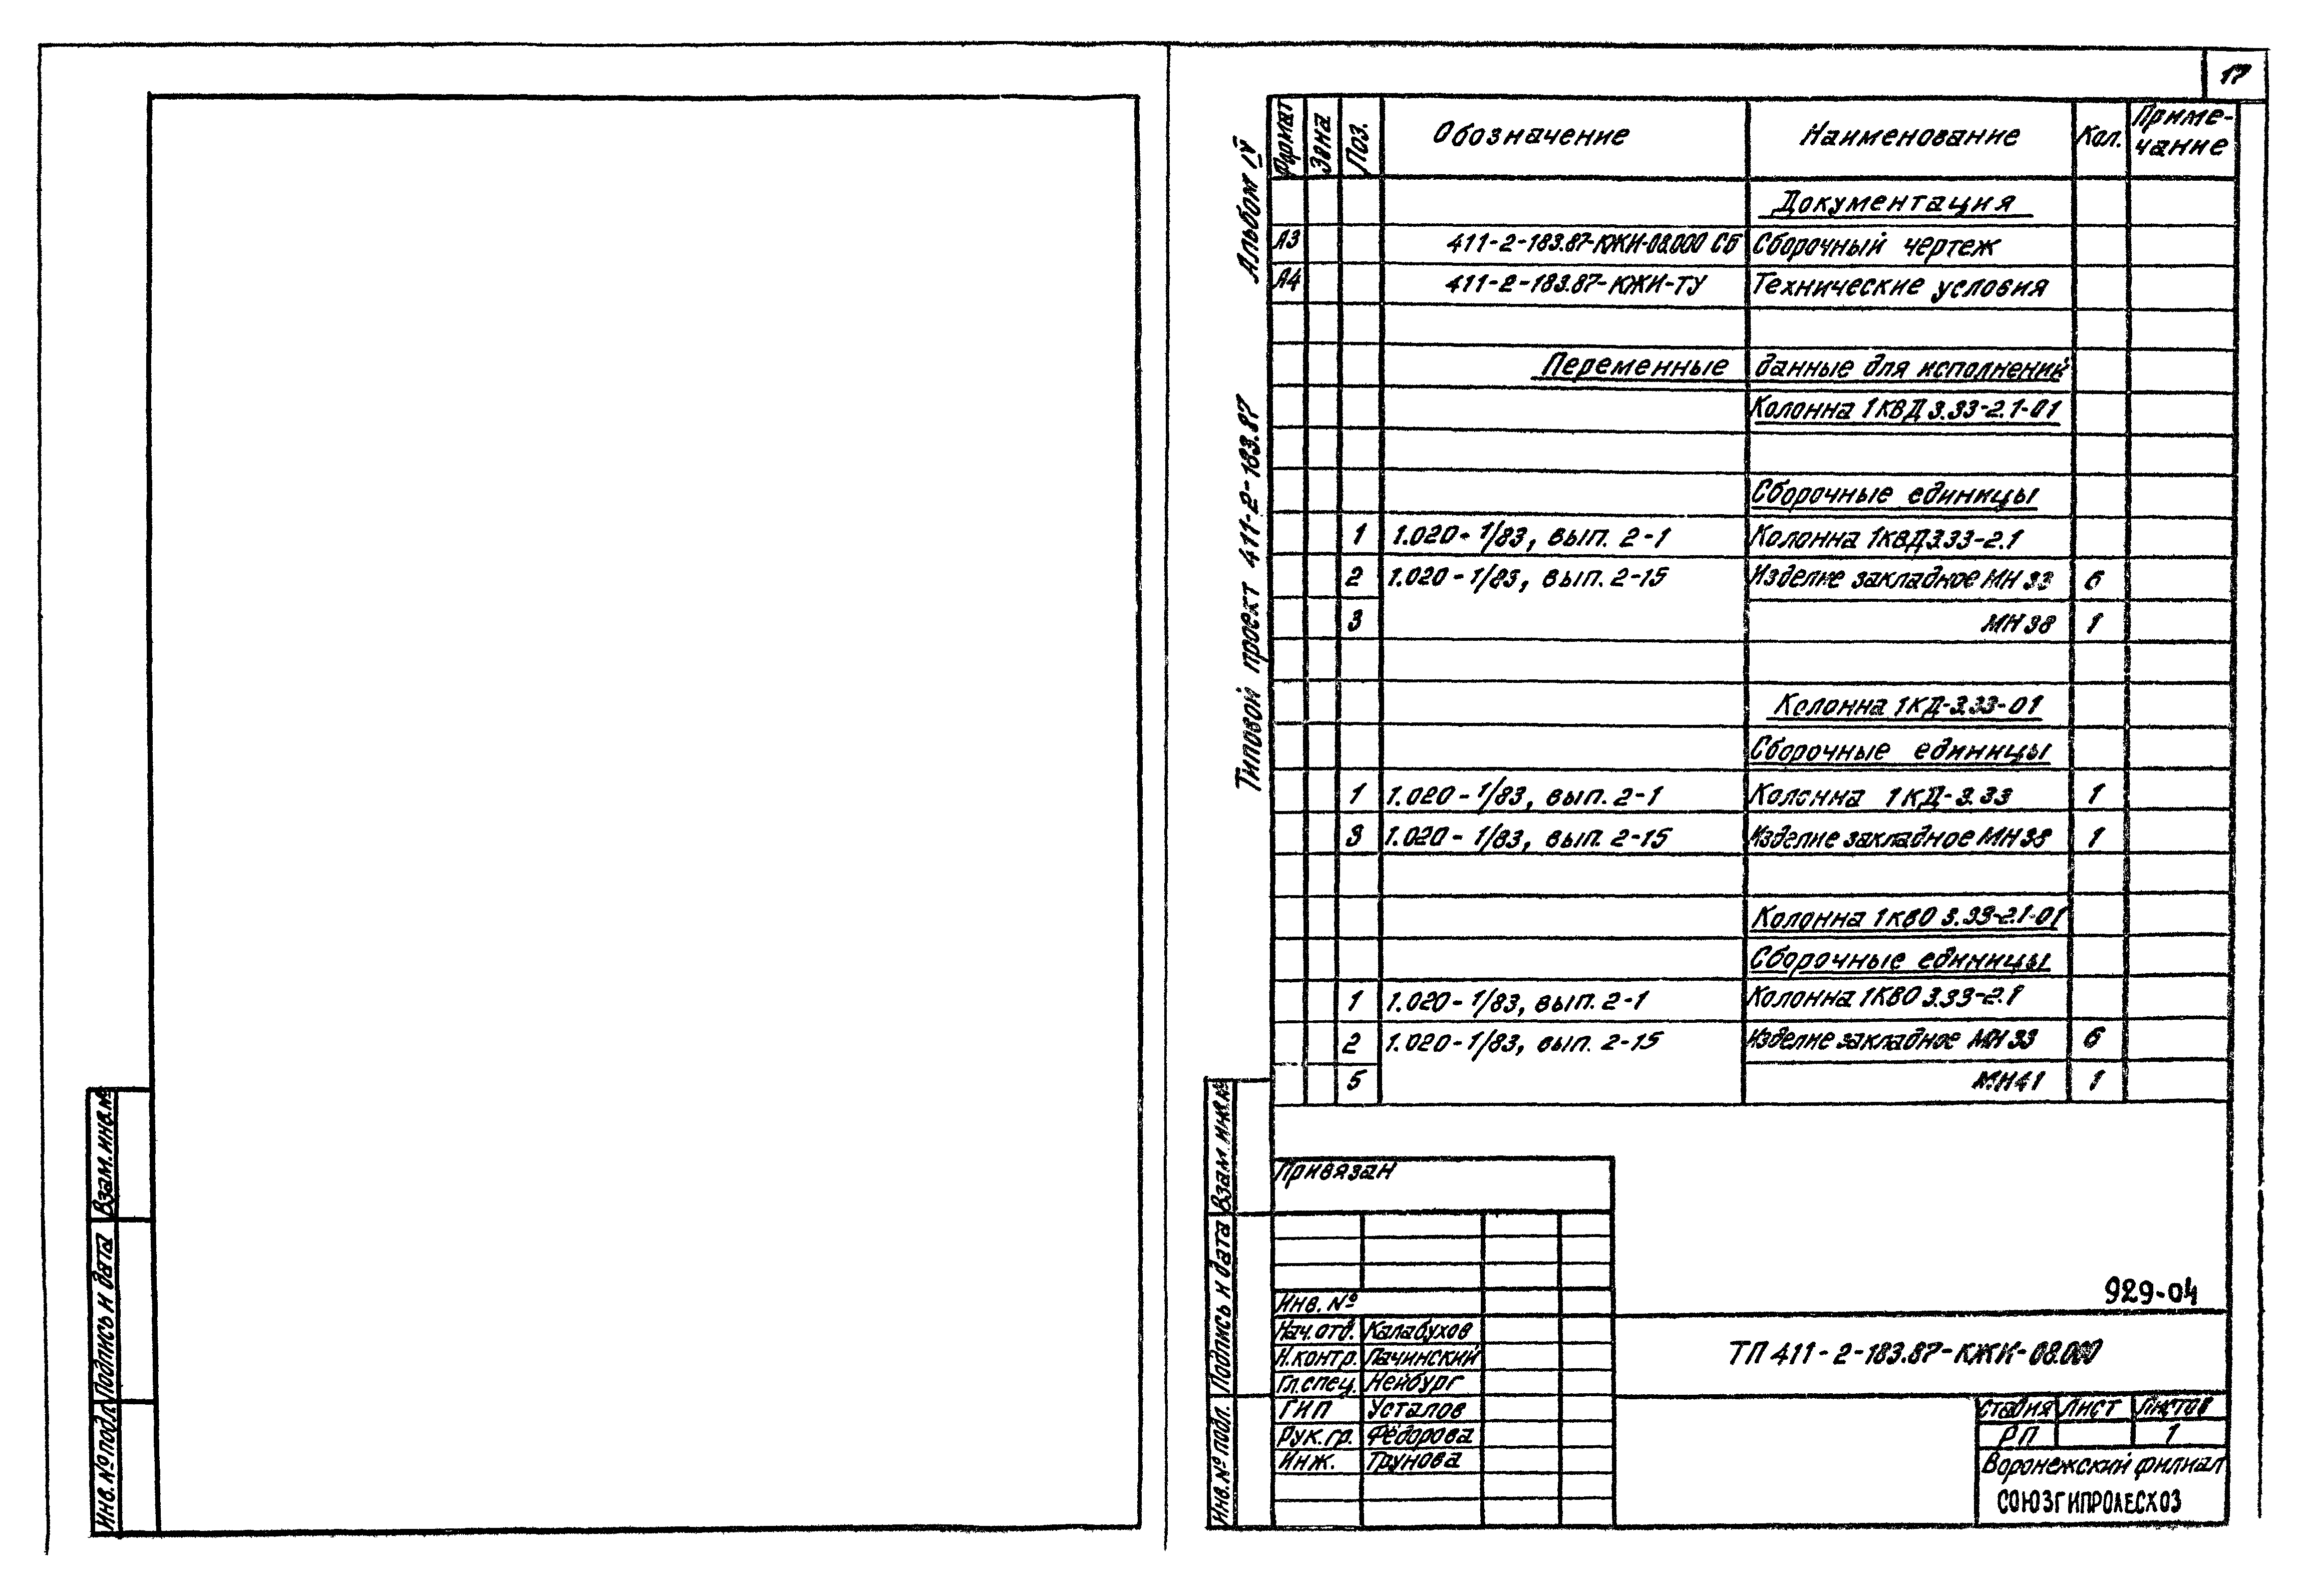 17
Альбом IV
Типовой проект 411-2-183.87
Формат Зона Поз. Обозначение Наименование Кол. Приме-
чание
Документация
А3 411-2-183.87-КЖИ-08.000 СБ Сборочный чертеж
А4 411-2-183.87-КЖИ-ТУ Технические условия
Переменные данные для исполнений
Колонна 1КВД 3.33-2.1-01
Сборочные единицы
1 1.020-1/83, вып. 2-1 Колонна 1КВД3.33-2.1
2 1.020-1/83, вып. 2-15 Изделие закладное МН 33 6
3 МН 38 1
Колонна 1КД-3.33-01
Сборочные единицы
1 1.020-1/83, вып. 2-1 Колонна 1КД-3.33 1
3 1.020-1/83, вып. 2-15 Изделие закладное МН 38 1
Колонна 1КВО 3.33-2.1-01
Сборочные единицы
1 1.020-1/83, вып. 2-1 Колонна 1КВО 3.33-2.1
2 1.020-1/83, вып. 2-15 Изделие закладное МН 33 6
5 МН41 1
Взам. инв.№
Подпись и дата
Инв.№ подл.
Взам. инв.№
Подпись и дата
Инв.№ подл.
Привязан
Инв. №
929-04
Нач.отд. Калабухов
Н.контр. Пачинский
Гл.спец. Нейбург
ГИП Усталов
Рук.гр. Фёдорова
Инж. Трунова
ТП 411-2-183.87-КЖИ-08.000
Стадия Лист Листов
РП 1
Воронежский филиал
СОЮЗГИПРОЛЕСХОЗ